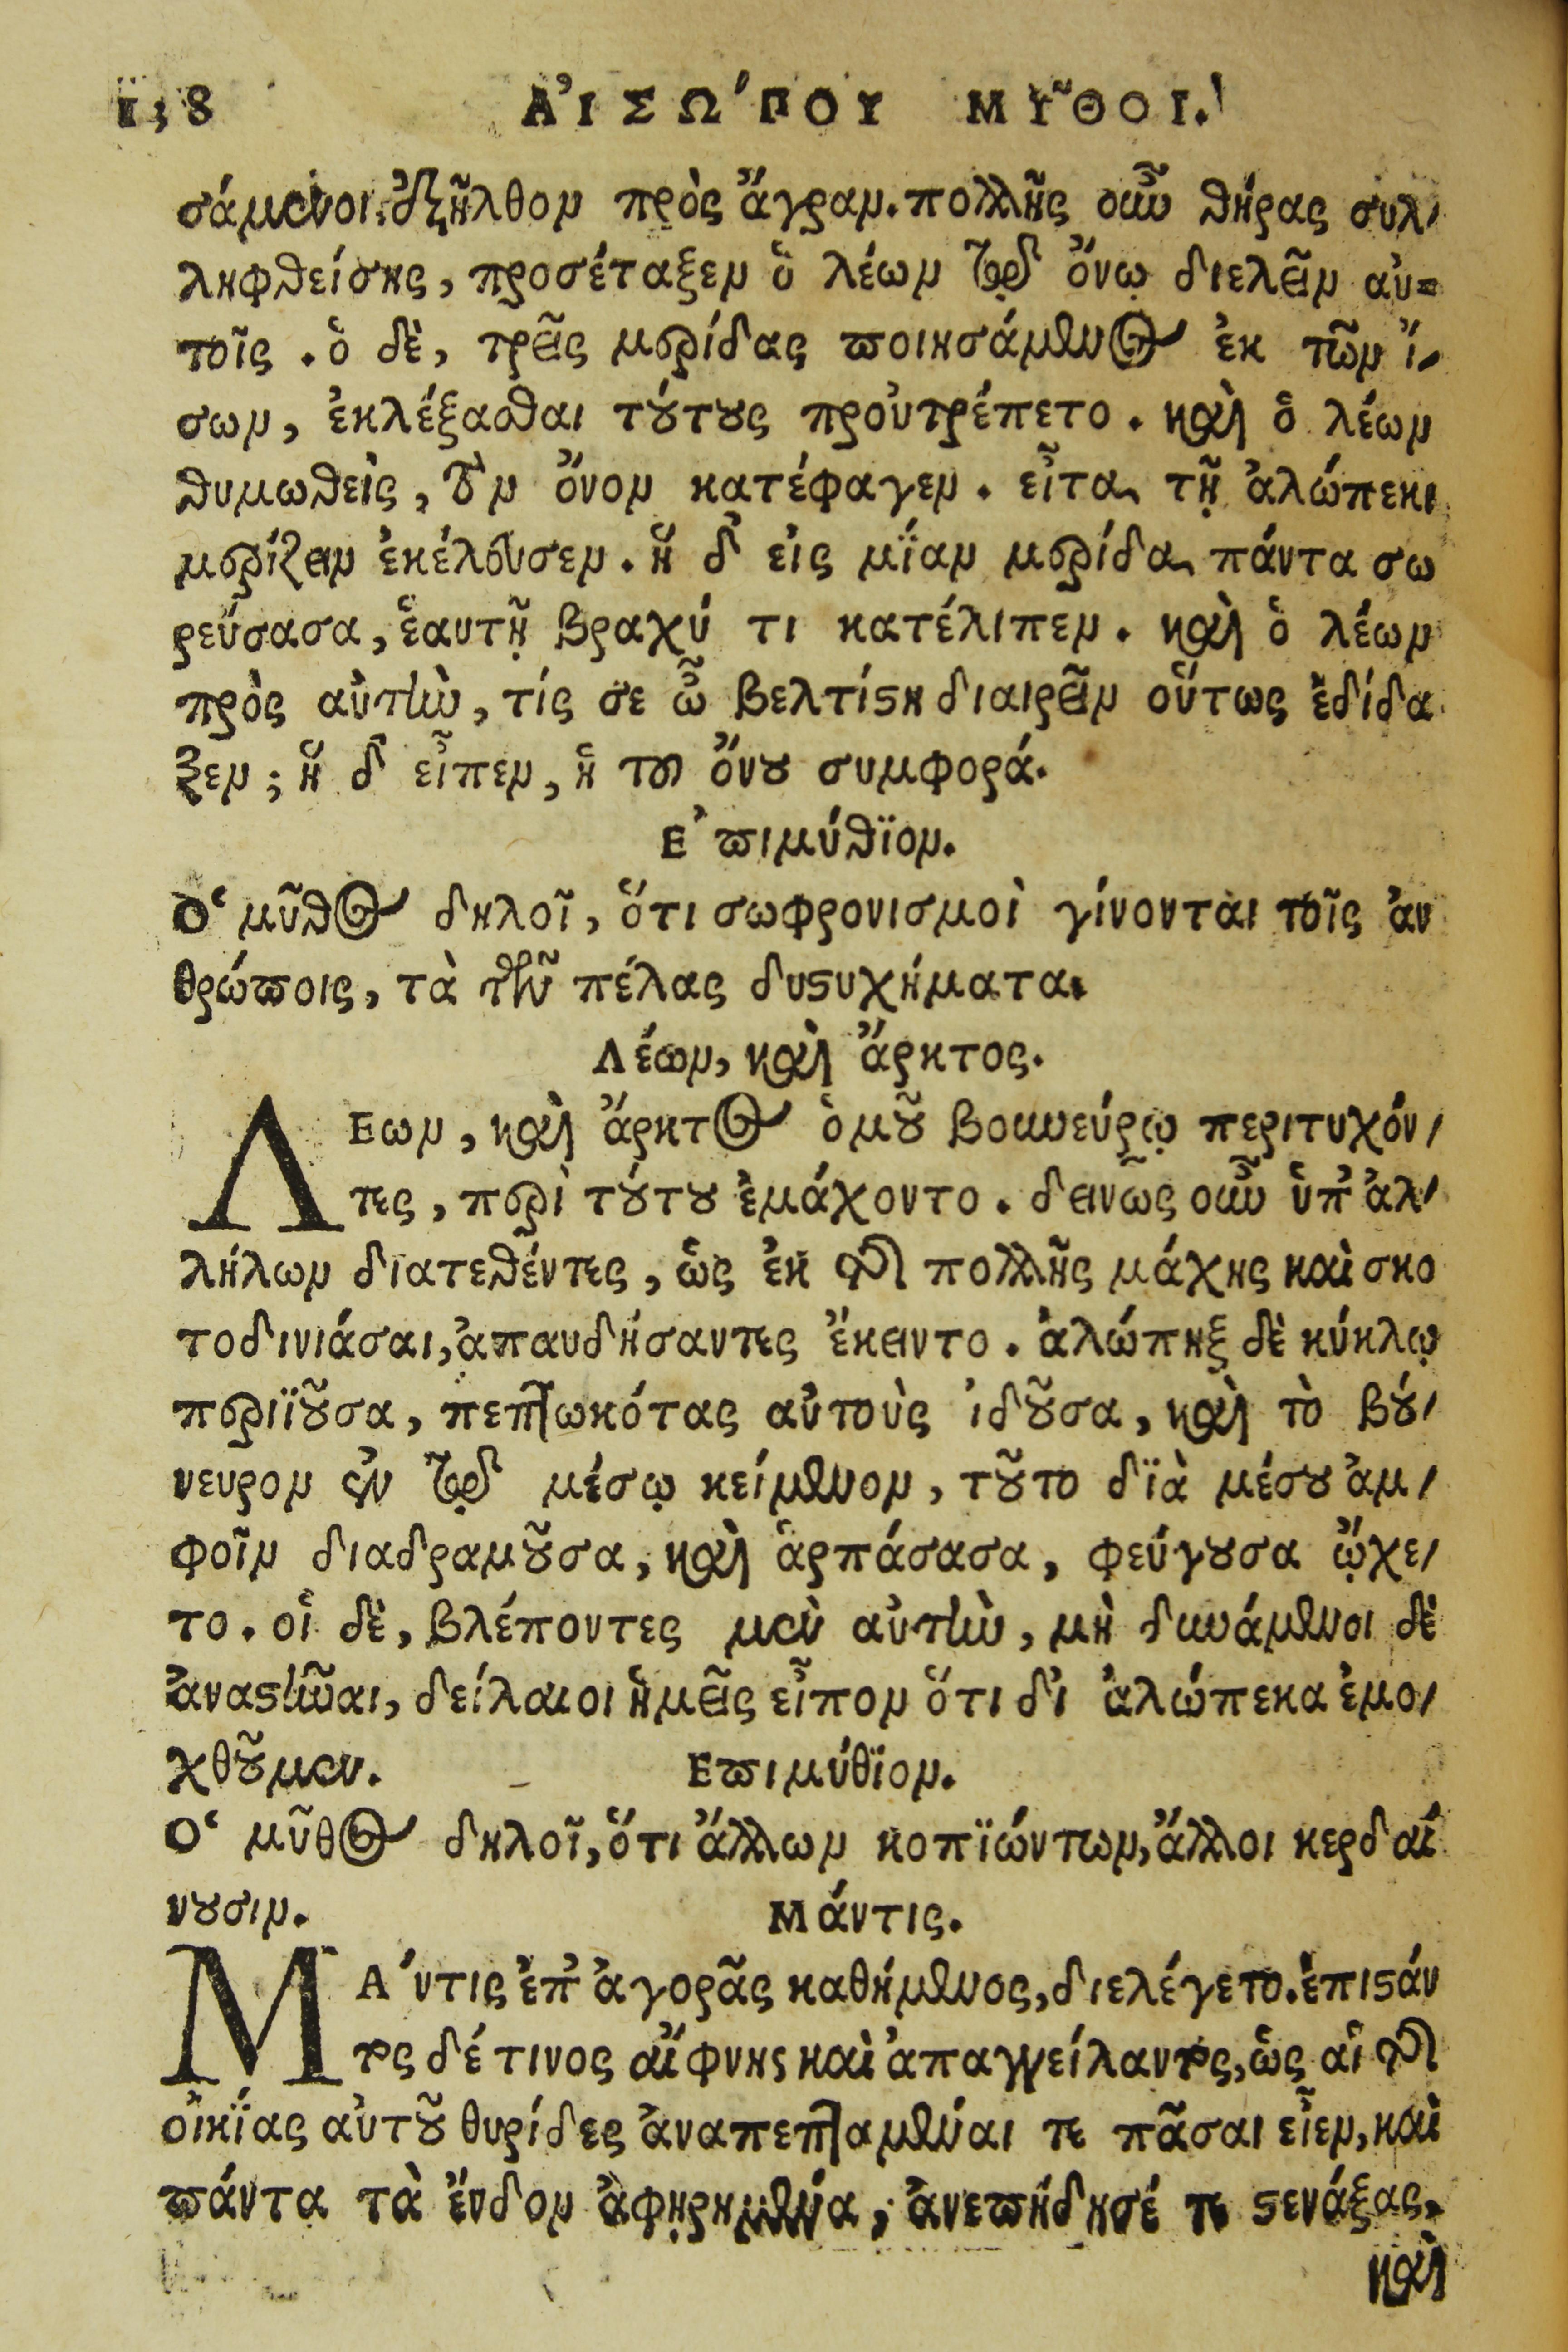 138 ΑἸΣΩΠΟΥ ΜΥ͂ΘΟΙ.
σάμενοι, ἐξῆλθον πρὸς ἄγραν. πολλῆς οὖν θήρας συλ-
ληφθείσης, προσέταξεν ὁ λέων τῷ ὄνῳ διελεῖν αὐ-
τοῖς. ὁ δὲ, τρεῖς μερίδας ποιησάμενος ἐκ τῶν ἴ-
σων, ἐκλέξασθαι τούτους προὐτρέπετο. καὶ ὁ λέων
θυμωθεὶς, τὸν ὄνον κατέφαγεν. εἶτα τῇ ἀλώπεκι
μερίζειν ἐκέλευσεν. ἡ δ' εἰς μίαν μερίδα πάντα σω
ρεύσασα, ἑαυτῇ βραχύ τι κατέλιπεν. καὶ ὁ λέων
πρὸς αὐτὴν, τίς σε ὦ βελτίστη διαιρεῖν οὕτως ἐδίδα
ξεν; ἡ δ' εἶπεν, ἡ τοῦ ὄνου συμφορά.
Ἐπιμύθϊον.
Ὁ μῦθος δηλοῖ, ὅτι σωφρονισμοὶ γίνονται τοῖς ἀν
θρώποις, τὰ τῶν πέλας δυστυχήματα.
Λέων, καὶ ἄρκτος.
ΛΕων, καὶ ἄρκτος ὁμοῦ βουνεύρῳ περιτυχόν-
τες, περὶ τούτου ἐμάχοντο. δεινῶς οὖν ὑπ' ἀλ-
λήλων διατεθέντες, ὡς ἐκ τῆς πολλῆς μάχης καὶ σκο
τοδινιάσαι, ἀπαυδήσαντες ἔκειντο. ἀλώπηξ δὲ κύκλῳ
περιϊοῦσα, πεπτωκότας αὐτοὺς ἰδοῦσα, καὶ τὸ βού-
νευρον ἐν τῷ μέσῳ κείμενον, τοῦτο δϊὰ μέσου ἀμ-
φοῖν διαδραμοῦσα, καὶ ἁρπάσασα, φεύγουσα ᾤχε-
το. οἱ δὲ, βλέποντες μὲν αὐτὴν, μὴ δυνάμενοι δὲ
ἀναστῆναι, δείλαιοι ἡμεῖς εἶπον ὅτι δι' ἀλώπεκα ἐμο-
χθοῦμεν. Επιμύθϊον.
Ὁ μῦθος δηλοῖ, ὅτι ἄλλων κοπϊώντων, ἄλλοι κερδαί
νουσιν. Μάντις.
ΜΑ'ντις ἐπ' ἀγορᾶς καθήμενος, διελέγετο. ἐπιστάν
τος δέ τινος αἴφνης καὶ ἀπαγγείλαντος, ὡς αἱ τῆς
οἰκίας αὐτοῦ θυρίδες ἀναπεπταμέναι τε πᾶσαι εἶεν, καὶ
πάντα τὰ ἔνδον ἀφῃρημένα, ἀνεπήδησέ τε στενάξας,
καὶ